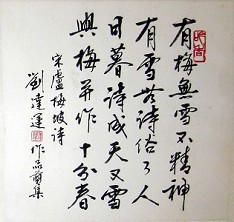 有梅無雪不精神
有雪無詩俗了人
日暮詩成天又雪
與梅并作十分春
宋盧梅坡詩
劉達運作品集